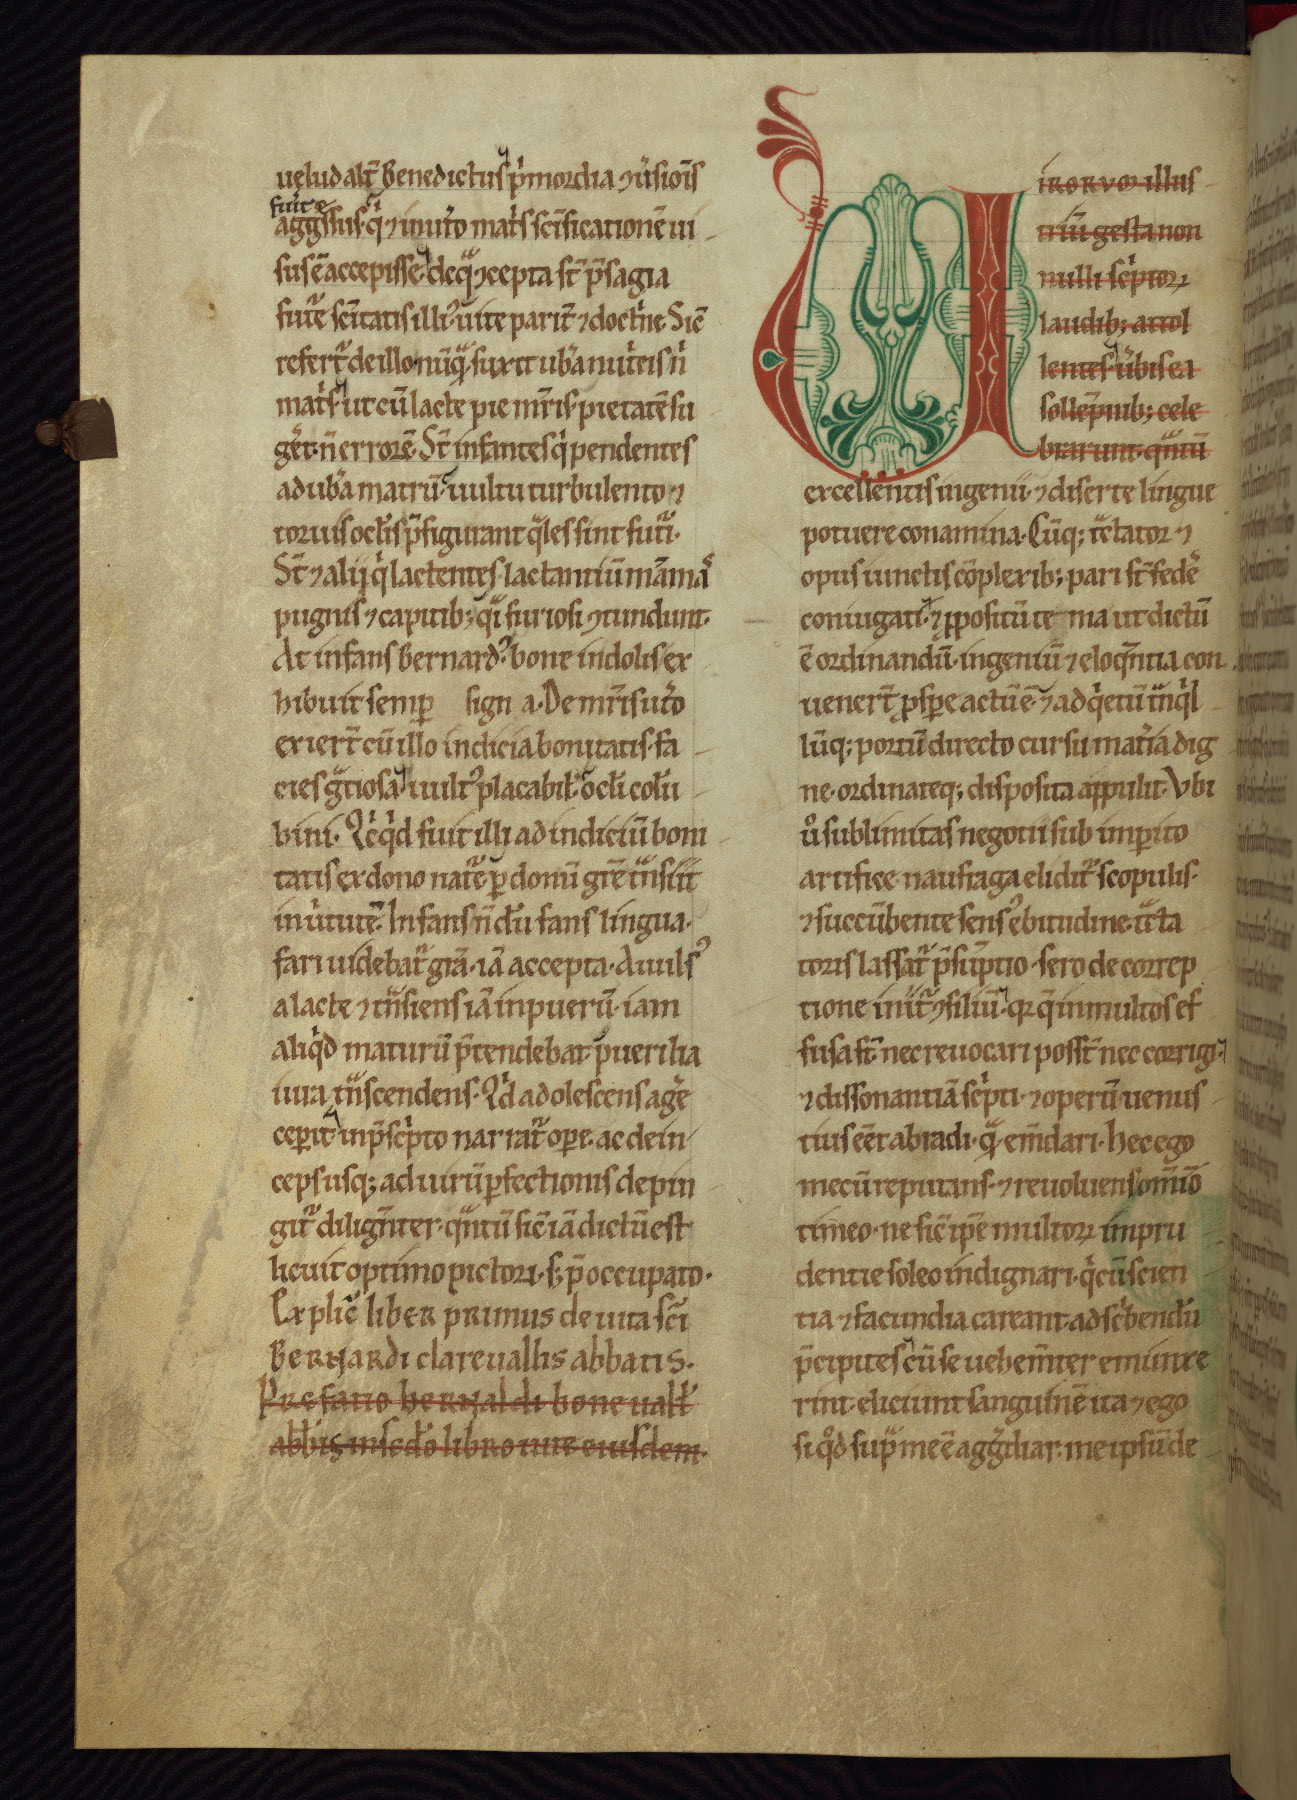 uelud alt̄ benedictus p̍mordia ɔ̄ūsiōis
fuit e
agg̃ssus q̍ ⁊ in ut̍o mat̍s sc̄ificationē ui
sus ē accepisse de quo ɔcepta st̄ p̄sagia
fut̄e sc̄itatis illi᾽ uite parit̄ ⁊ doct̍ne. Sic̄
refert̃ de illo nūq̃ suxit ub̃a nut̍cis n̍
mat̍s ut cū lacte pie mr̄is pietatē su
geret n̄ errorē. St̄ infantes q̍ pendentes
ad ub̃a matrū uultu turbulento ⁊
toruis ocl̄is p̄figurant q̃les sint futi̍.
St̄ ⁊ alij q̍ lactentes lactantiū mam̄a
pugnis ⁊ capitib; q̃i furiosi ɔtundunt.
At infans bernard᾽ bone indolis ex
hibuit semp̱ sign a. De mr̄is ut̍o
exiert̄ cū illo indicia bonitatis fa
cies g̃tiosa uult᾽ placabil̄ ocl̄i colū
bini. Q̍cq̍d fuit illi ad indiciū boni
tatis ex dono nat̃e p̱ donū gr̄e t̃nsiit
in u̍tutē. Infans n̄dū fans lingua.
fari uidebat̃ gr̄a. iā accepta. Auuls᾽
a lacte ⁊ t̃nsiens iā in puerū iam
aliq̍d maturū p̄tendebat puerilia
uua t̃nscendens. Q̍d adolescens ag̃e
cep̱it in p̄sc̍pto narrat̃ op̱e. ac dein
ceps usq; ad uirū p̱fectionis depin
git̃ dilign̄ter q̃ntū sic̄ iā dictū est
licuit optimo pictori. s; p̄occupato.
Explic̄ liber primus de uita sc̄i
Bernardi clareuallis abbatis.
Prefatio bernaldi bone uall̄
abb̄is in sc̄do libro uite eiusdem.
UIRORVM illus
triū gesta non
nulli sc̍ptoꝝ
laudib; attol
lentes u̍bis ea
sollēpnib; cele
brarunt q̃ntū
excellentis ingenii ⁊ diserte lingue
potuere conamina. Cūq; t̃ctator ⁊
opus iunctis cōplexib; pari st̄ fedē
coniugati ⁊ p̱positū te ma ut dictū
ē ordinandū ingeniū ⁊ eloq̃ntia con
uenert̄ p̱sp̱e actū ē ⁊ ad q̍etū t̃nq̍l
lūq; portū directo cursu mat̍ia dig
ne ordinateq; disposita appulit. Vbi
u̍o sublimitas negotii sub imp̱ito
artifice naufraga elidit̃ scopulis.
⁊ succūbente sens᾽ ebitudine t̃cta
toris lassat̃ p̄sūptio sero de correp
tione init̃ ɔsiliū qꝛ q̄ in multos ef
fusa st̄ nec reuocari poss̄t nec corrigi
⁊ dissonantiā sc̍pti ⁊ operū uenus
tius eēt abradi q̃ em̄dari. hec ego
mecū reputans ⁊ reuoluens om̄io
timeo ne sic̄ ip̄e multoꝝ impru
dentie soleo indignari q̍ cū scien
tia ⁊ facundia careant ad sc̍bendū
p̄cipites cū se uehem̄ter emunxe
rint eliciunt sanguinē ita ⁊ ego
si q̍d sup̃ me ē agg̃diar me ipsū de